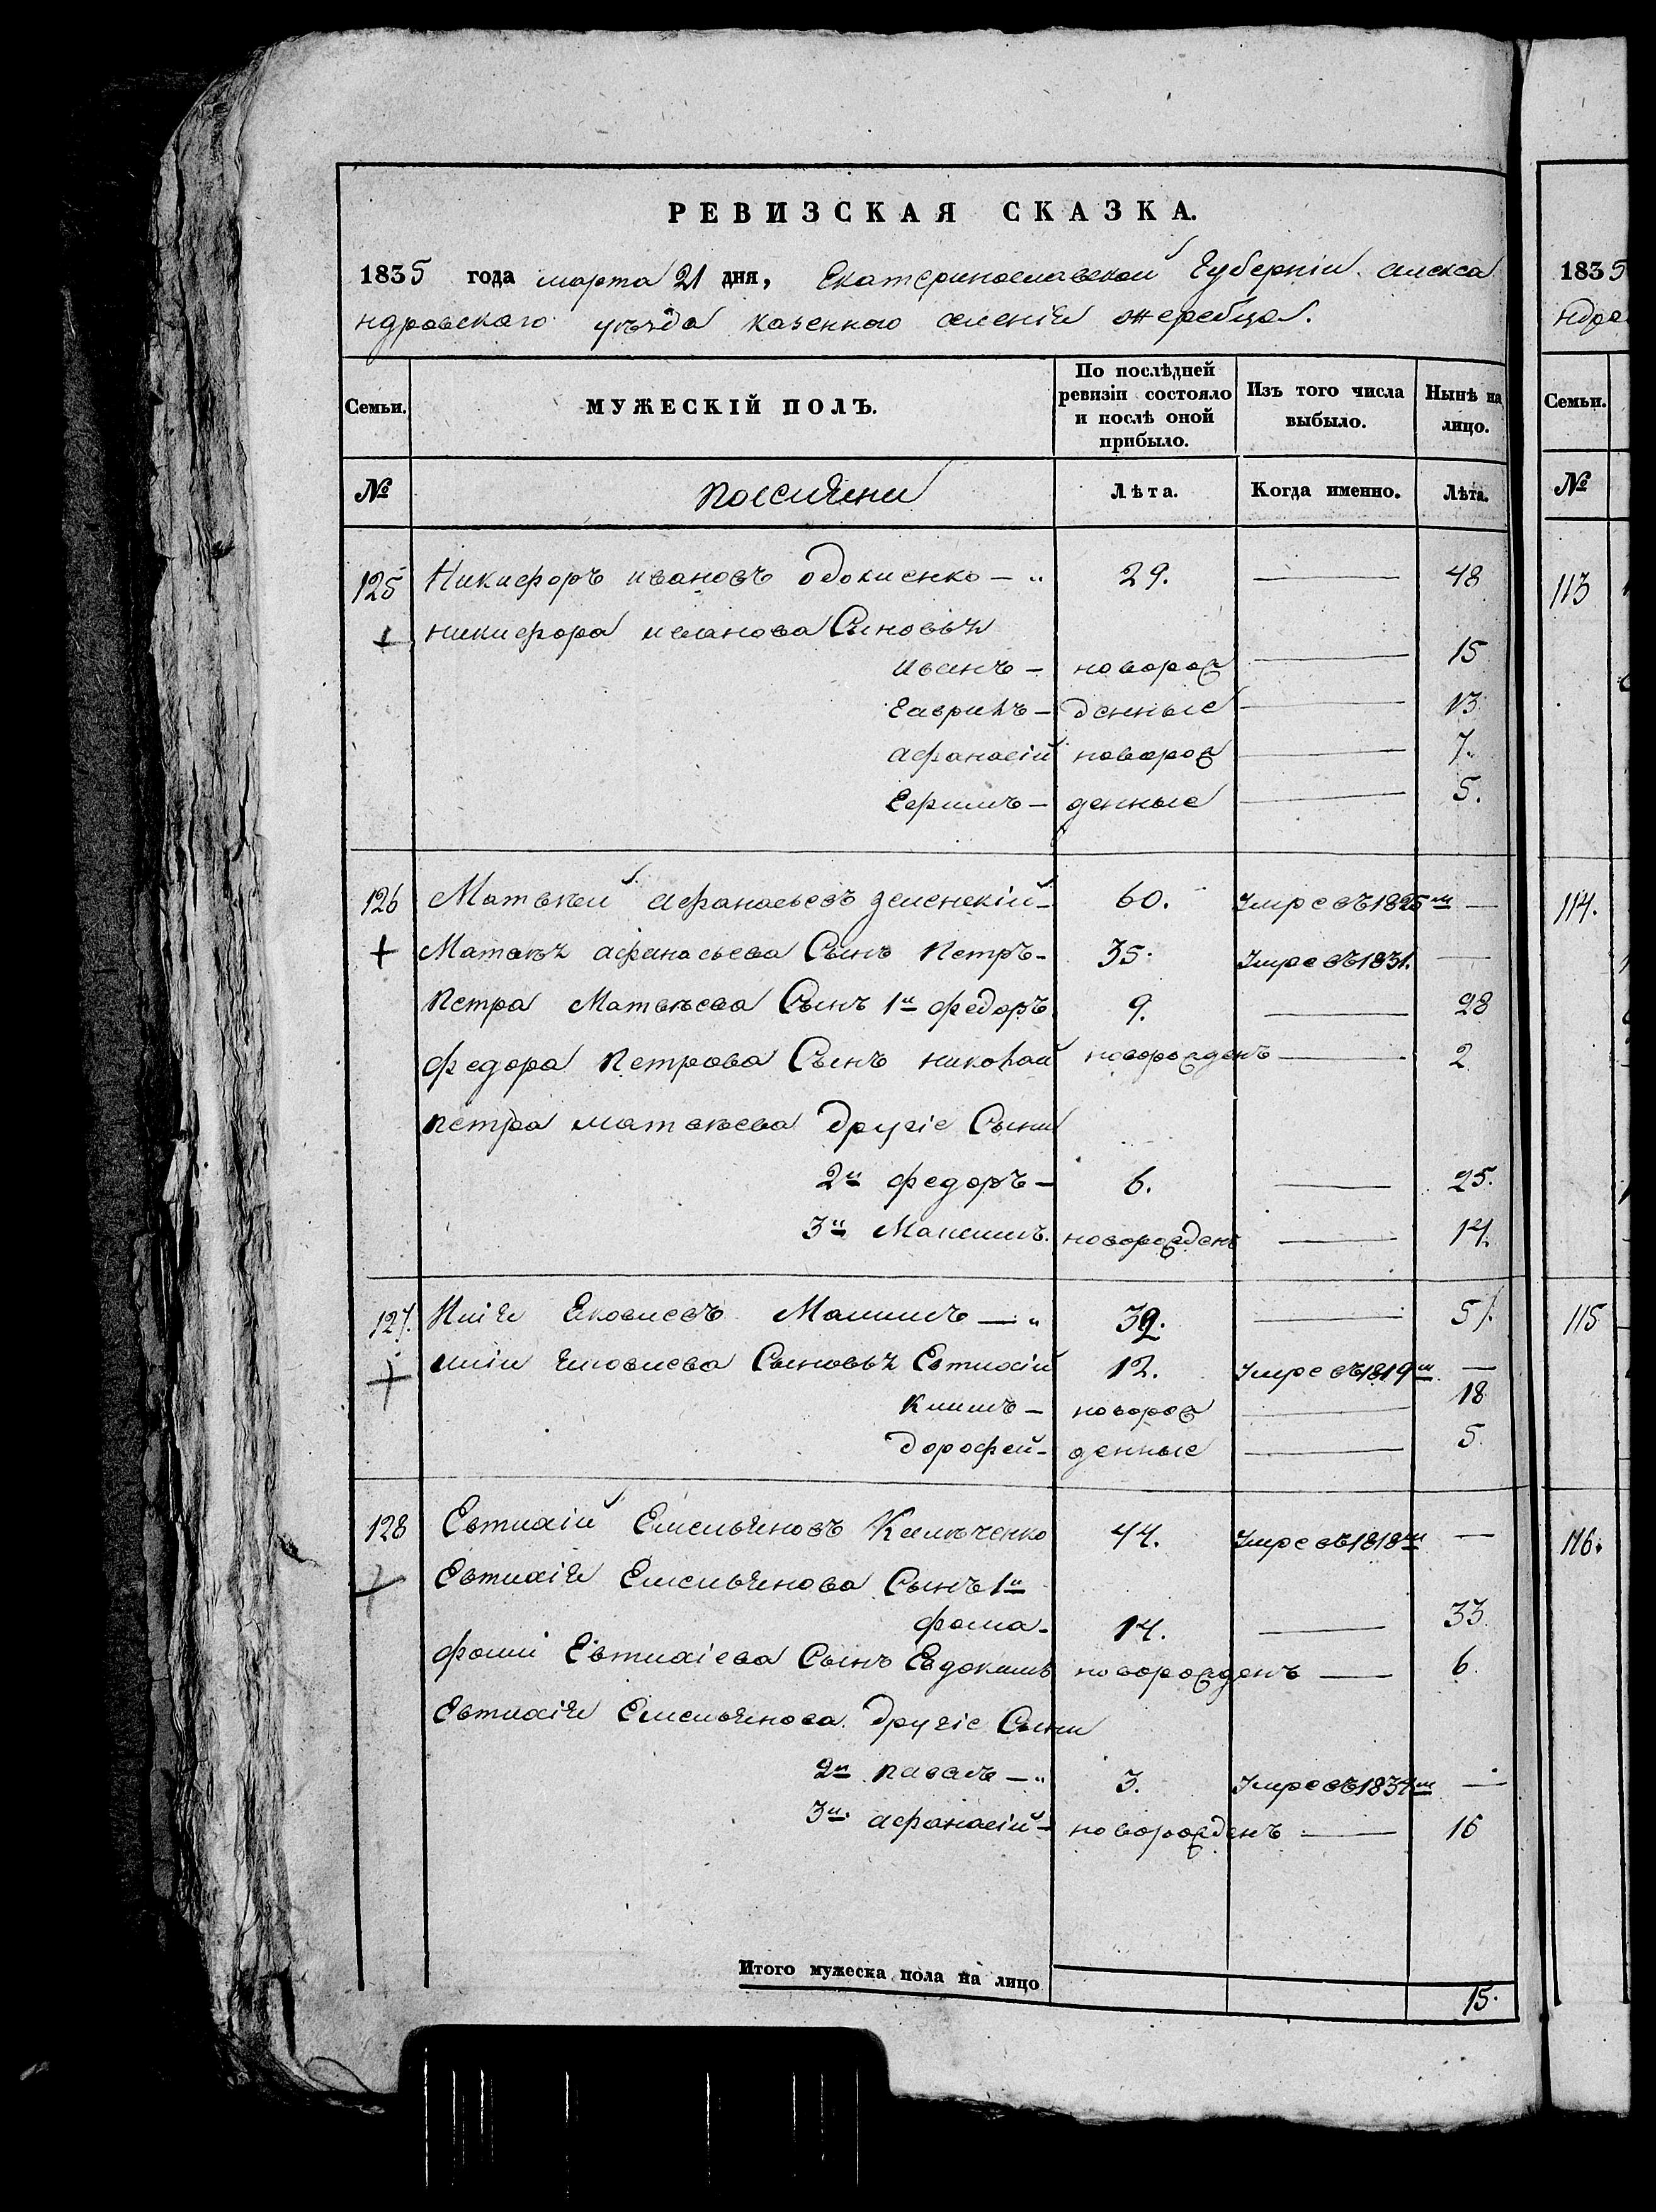 РЕВИЗСКАЯ СКАЗКА.
1835 года марта 21 дня, Екатеринославской Губерніи алекса
ндровскаго уѣзда казенного селенія жеребца.
Семьи. МУЖЕСКІЙ ПОЛЪ. По послѣдней ревизіи состояло и послѣ оной прибыло. Изъ того числа выбыло. Нынѣ на лицо.
№ Лѣта. Когда именно. Лѣта.
125 Никифоръ ивановъ 29. — 48
никифора иванова Сыновья
иванъ — новорож — 15
Гаврилъ — денные — 13
афанасій новорож — 7.
Ефимъ — денные — 5.
126 Матвей афанасьевъ зеленскій — 60. Умре въ 1825м —
Матвея афанасьева Сынъ Петръ — 35. Умре въ 1831. —
Петра Матвѣева Сынъ 1й федоръ 9. — 28
федора Петрова Сынъ николай новорожденъ — 2
петра матвѣева другіе Сыни
2й федоръ — 6. — 25.
3й Максимъ. новорожденъ — 14
127. Илія Яковлевъ 39. — 57.
иліи Яковлева Сыновья Евтихій 12. Умре въ 1819м —
Климъ — новорож — 18
дорофей — денные — 5.
128 Евтихій Емельяновъ 44. Умре въ 1818м —
Евтихія Емельянова Сынъ 1й
фома. 14. — 33.
фоми Евтихіева Сынъ Евдокимъ новорожденъ — 6.
Евтихія Емельянова другіе Сыни
2й павелъ — 3. Умре въ —
3й афанасій — новорожденъ — 16
Итого мужеска пола на лицо 15.
1835
ндро
Семьи.
№
113
114.
115
116.